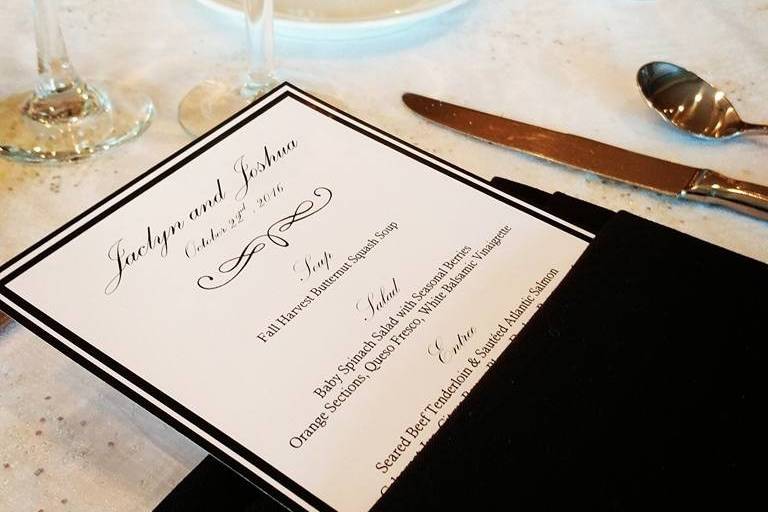 Jaclyn and Joshua
October 22nd, 2016
Soup
Fall Harvest Butternut Squash Soup
Salad
Baby Spinach Salad with Seasonal Berries
Orange Sections, Queso Fresco, White Balsamic Vinaigrette
Entree
Seared Beef Tenderloin & Sautéed Atlantic Salmon